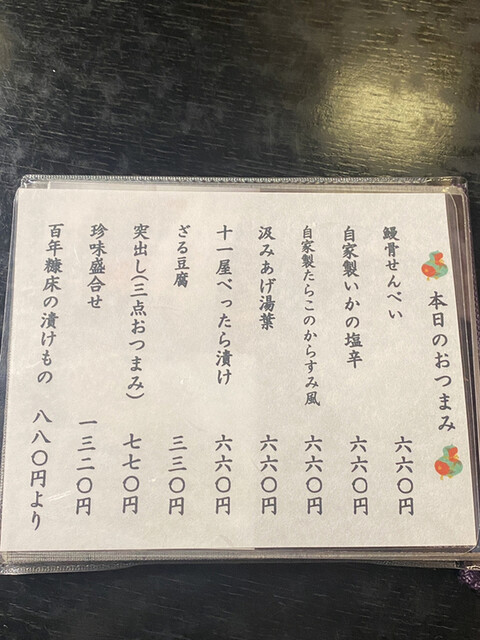 本日のおつまみ
鰻骨せんべい 六六〇円
自家製いかの塩辛 六六〇円
自家製たらこのからすみ風 六六〇円
汲みあげ湯葉 六六〇円
十一屋べったら漬け 六六〇円
ざる豆腐 三三〇円
突出し(三点おつまみ) 七七〇円
珍味盛合せ 一三二〇円
百年糠床の漬けもの 八八〇円より